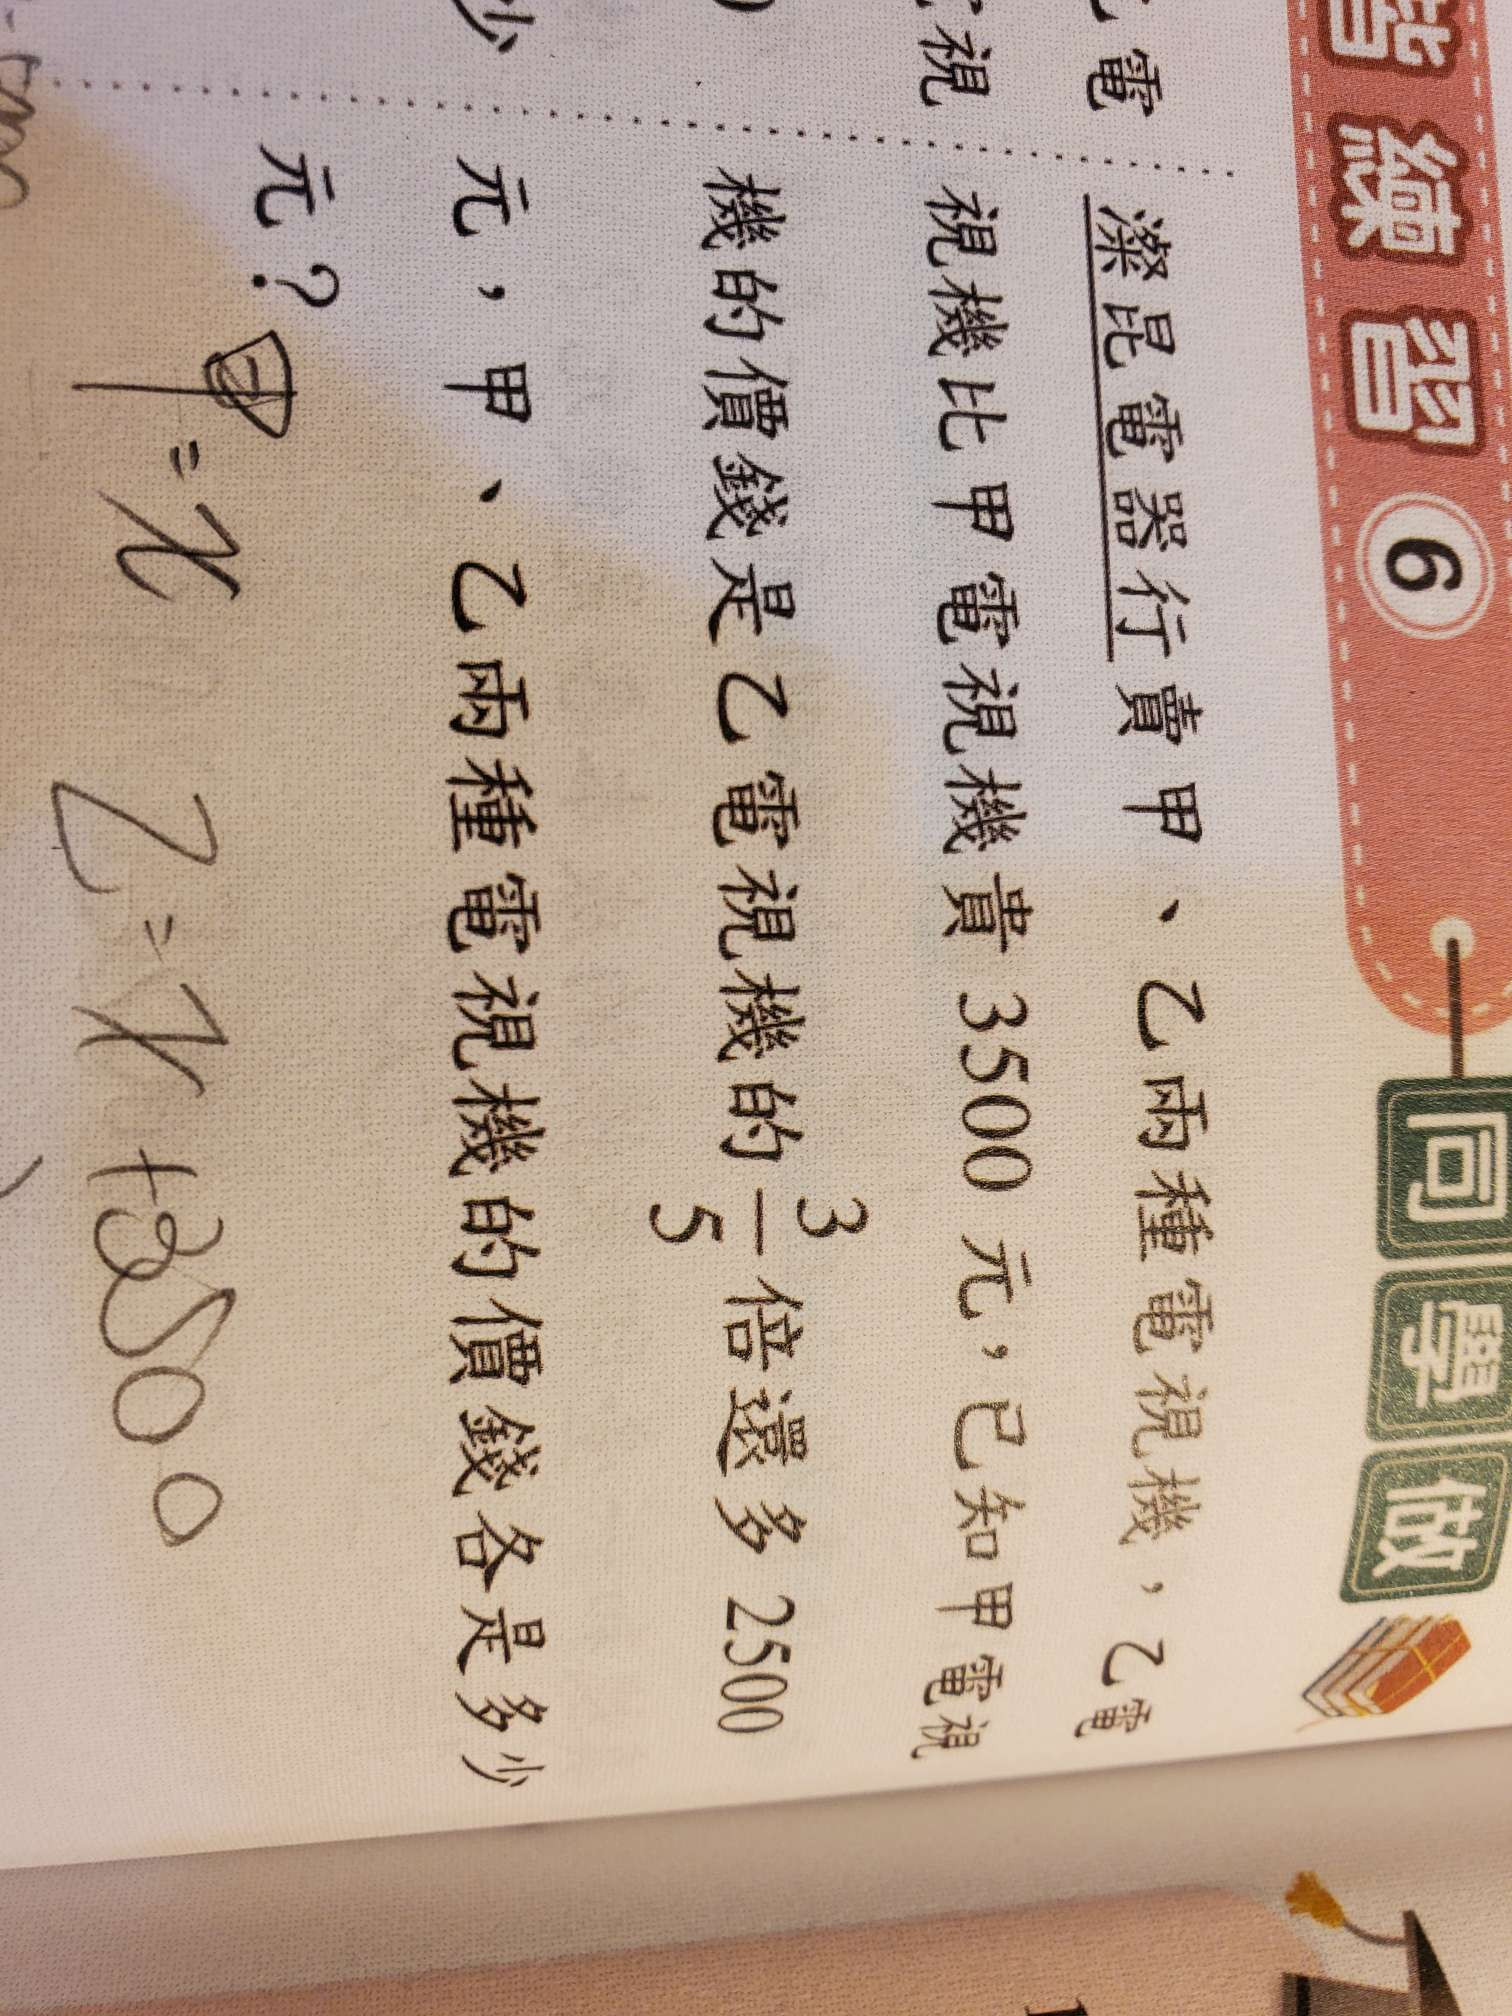 練習 6
同學做
電
視
少
燦昆電器行賣甲、乙兩種電視機,乙電
視機比甲電視機貴 3500 元,已知甲電視
機的價錢是乙電視機的 3/5 倍還多 2500
元,甲、乙兩種電視機的價錢各是多少
元?
甲=x 乙=x+3500